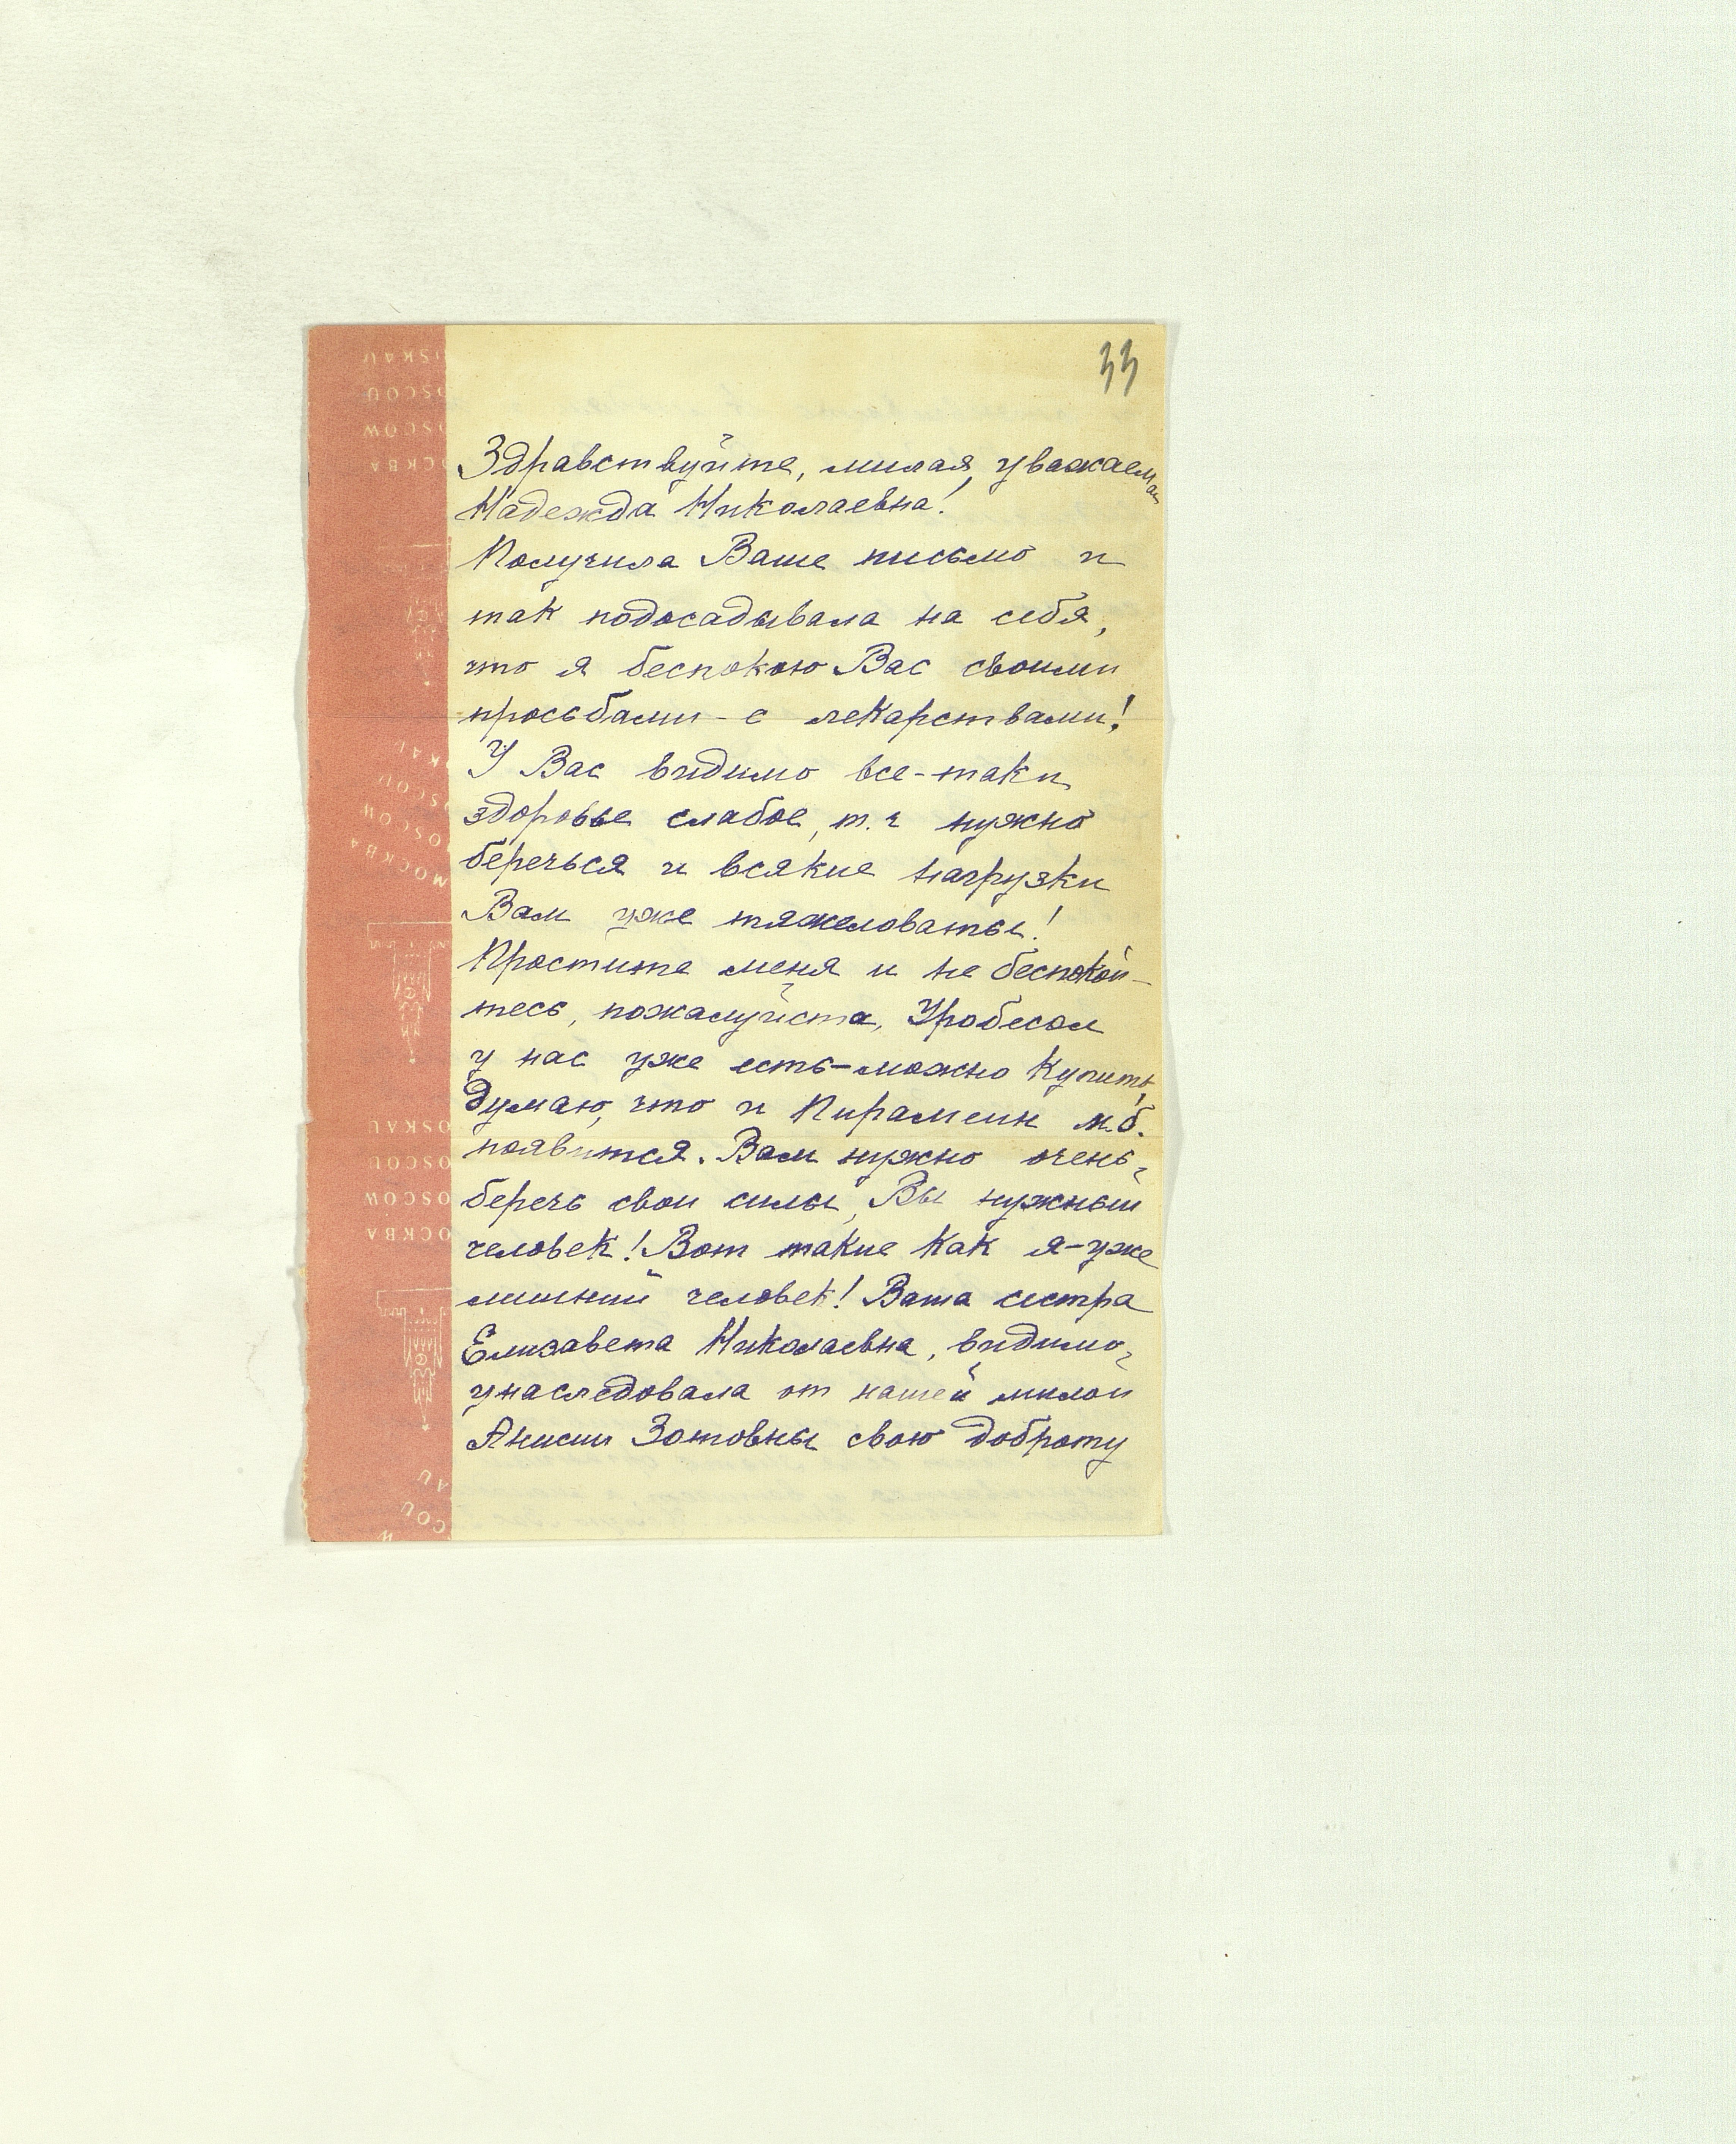 33
Здравствуйте, милая, уважаемая
Надежда Николаевна!
Получила Ваше письмо и
так подосадывала на себя,
что я беспокою Вас своими
просьбами - с лекарствами!
У Вас видимо все-таки
здоровье слабое, т.ч нужно
беречься и всякие нагрузки
Вам уже тяжеловаты!
Простите меня и не беспокой-
тесь, пожалуйста, Уробесал
у нас уже есть-можно купить,
думаю, что и Пирамеин м.б.
появится. Вам нужно очень
беречь свои силы, Вы нужный
человек! Вот такие как я-уже
лишний человек! Ваша сестра
Елизавета Николаевна, видимо,
унаследовала от нашей милой
Анисии Зотовны свою доброту
MOSKAU
MOSCOU
MOSCOW
МОСКВА
MOSKAU
MOSCOU
MOSCOW
МОСКВА
MOSKAU
MOSCOU
MOSCOW
МОСКВА